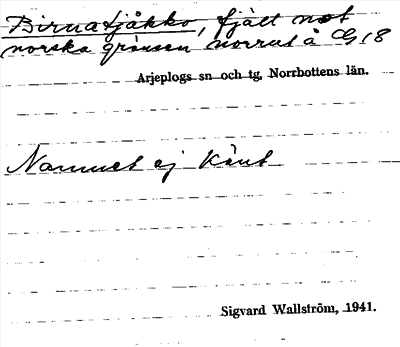 Birnatjåkko, fjäll mot
norska gränsen norrut å G 18
Arjeplogs sn och tg, Norrbottens län.
Namnet ej känt
Sigvard Wallström, 1941.